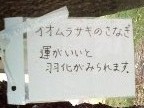 イオムラサキのさなぎ
運がいいと
羽化がみられます。